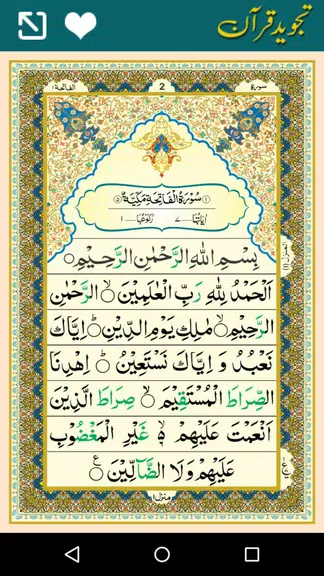 تجوید قرآن
سورة
2
الفاتحة ١
سُوْرَةُ الْفَاتِحَةِ مَكِّيَّةٌ
اٰیَاتُهَا ٧ رُكُوْعُهَا ١
بِسْمِ اللّٰهِ الرَّحْمٰنِ الرَّحِیْمِ
اَلْحَمْدُ لِلّٰهِ رَبِّ الْعٰلَمِیْنَ ۙ الرَّحْمٰنِ
الرَّحِیْمِ ۙ مٰلِكِ یَوْمِ الدِّیْنِ ؕ اِیَّاكَ
نَعْبُدُ وَ اِیَّاكَ نَسْتَعِیْنُ ؕ اِهْدِنَا
الصِّرَاطَ الْمُسْتَقِیْمَ ۙ صِرَاطَ الَّذِیْنَ
اَنْعَمْتَ عَلَیْهِمْ ۙ۬ غَیْرِ الْمَغْضُوْبِ
عَلَیْهِمْ وَلَا الضَّآلِّیْنَ
منزل ١